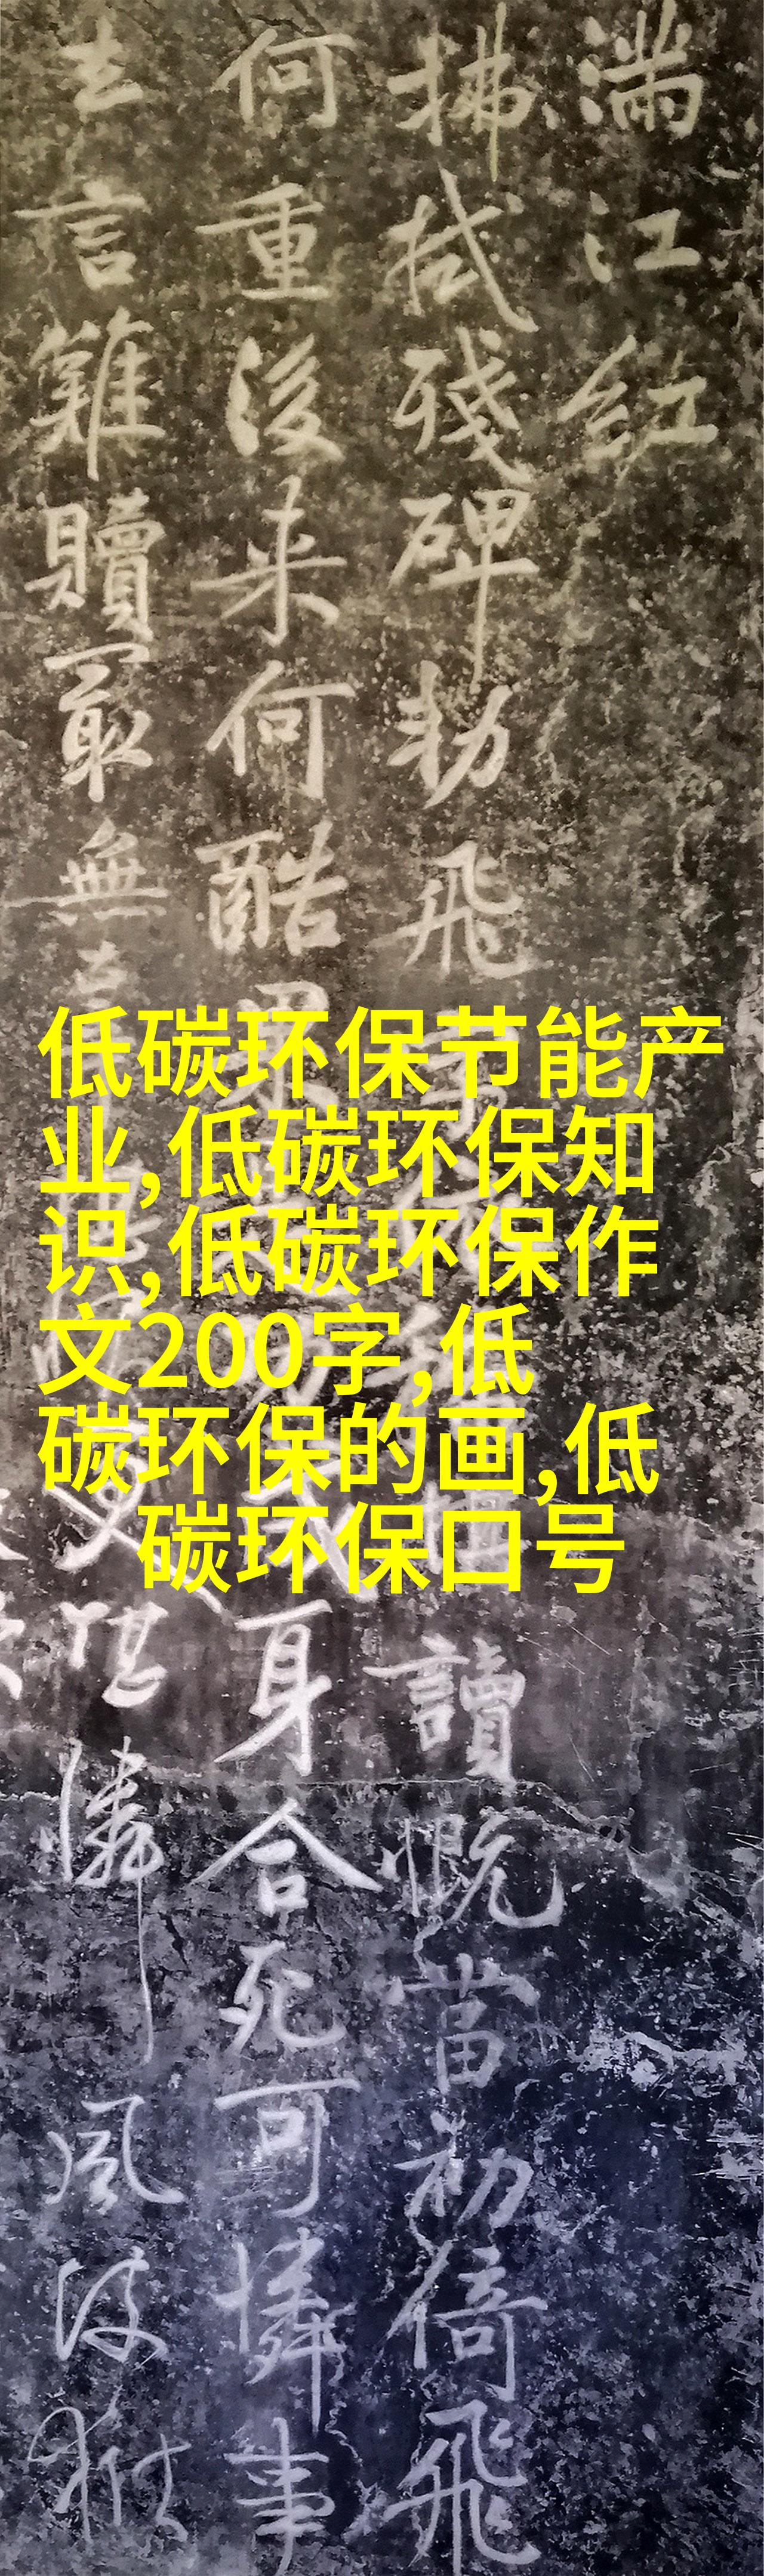 滿江紅
拂拭殘碑勑飛讀慨當初倚飛
何重後来何酷身合死可憐事
去言難贖最無堪憐風波獄
低碳环保节能产
业,低碳环保知
识,低碳环保作
文200字,低
碳环保的画,低
碳环保口号